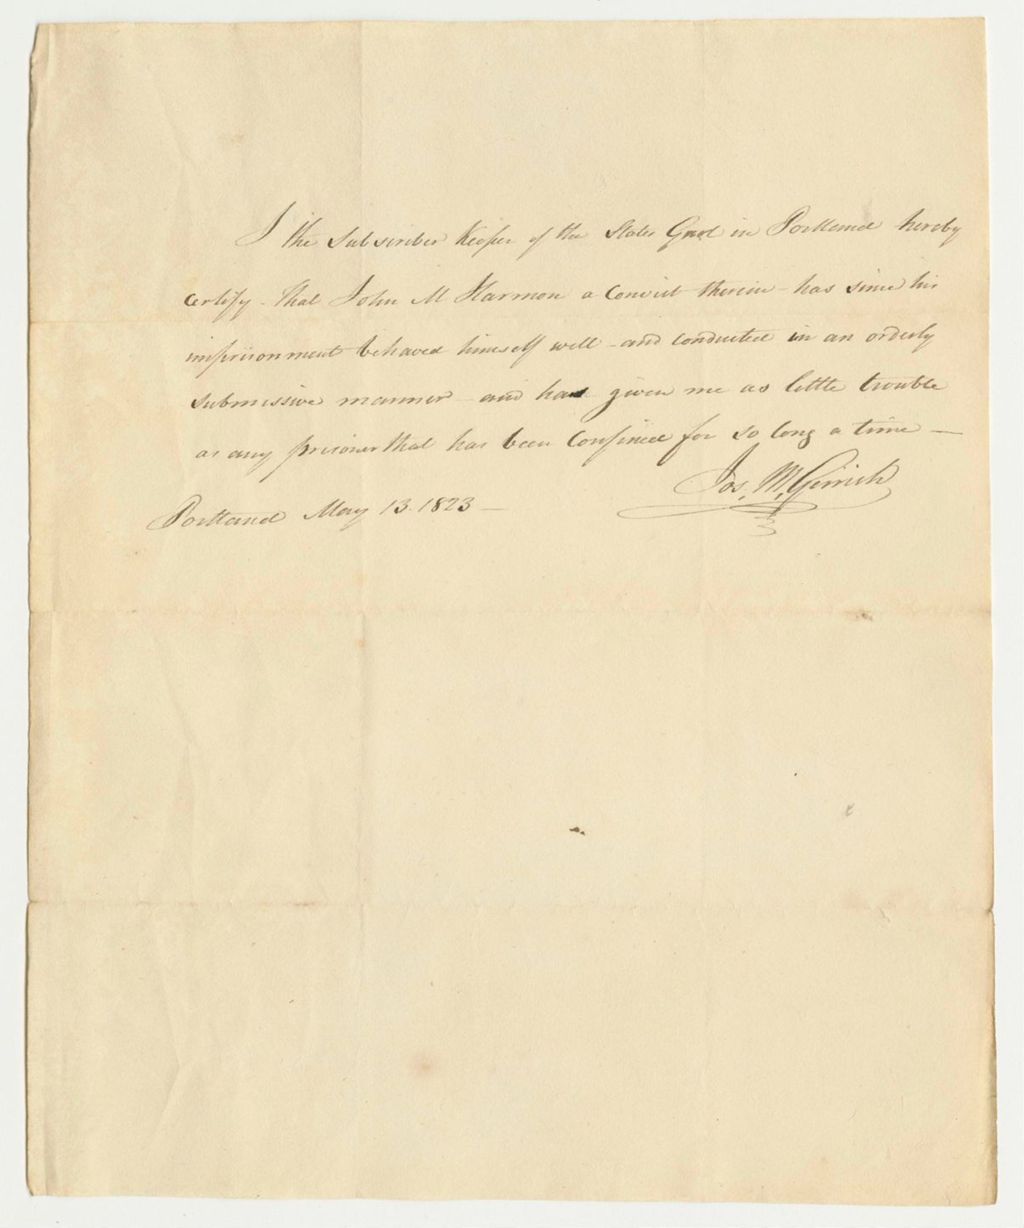 I the Subscriber Keeper of the States Gaol in Portland hereby
certify - that John M Harmon a Convict therein - has since his
imprisonment behaved himself well - and conducted in an orderly
submissive manner - and has given me as little trouble
as any prisoner that has been Confined for so long a time —
Jos. M. Gerrish
Portland May 13. 1823 —